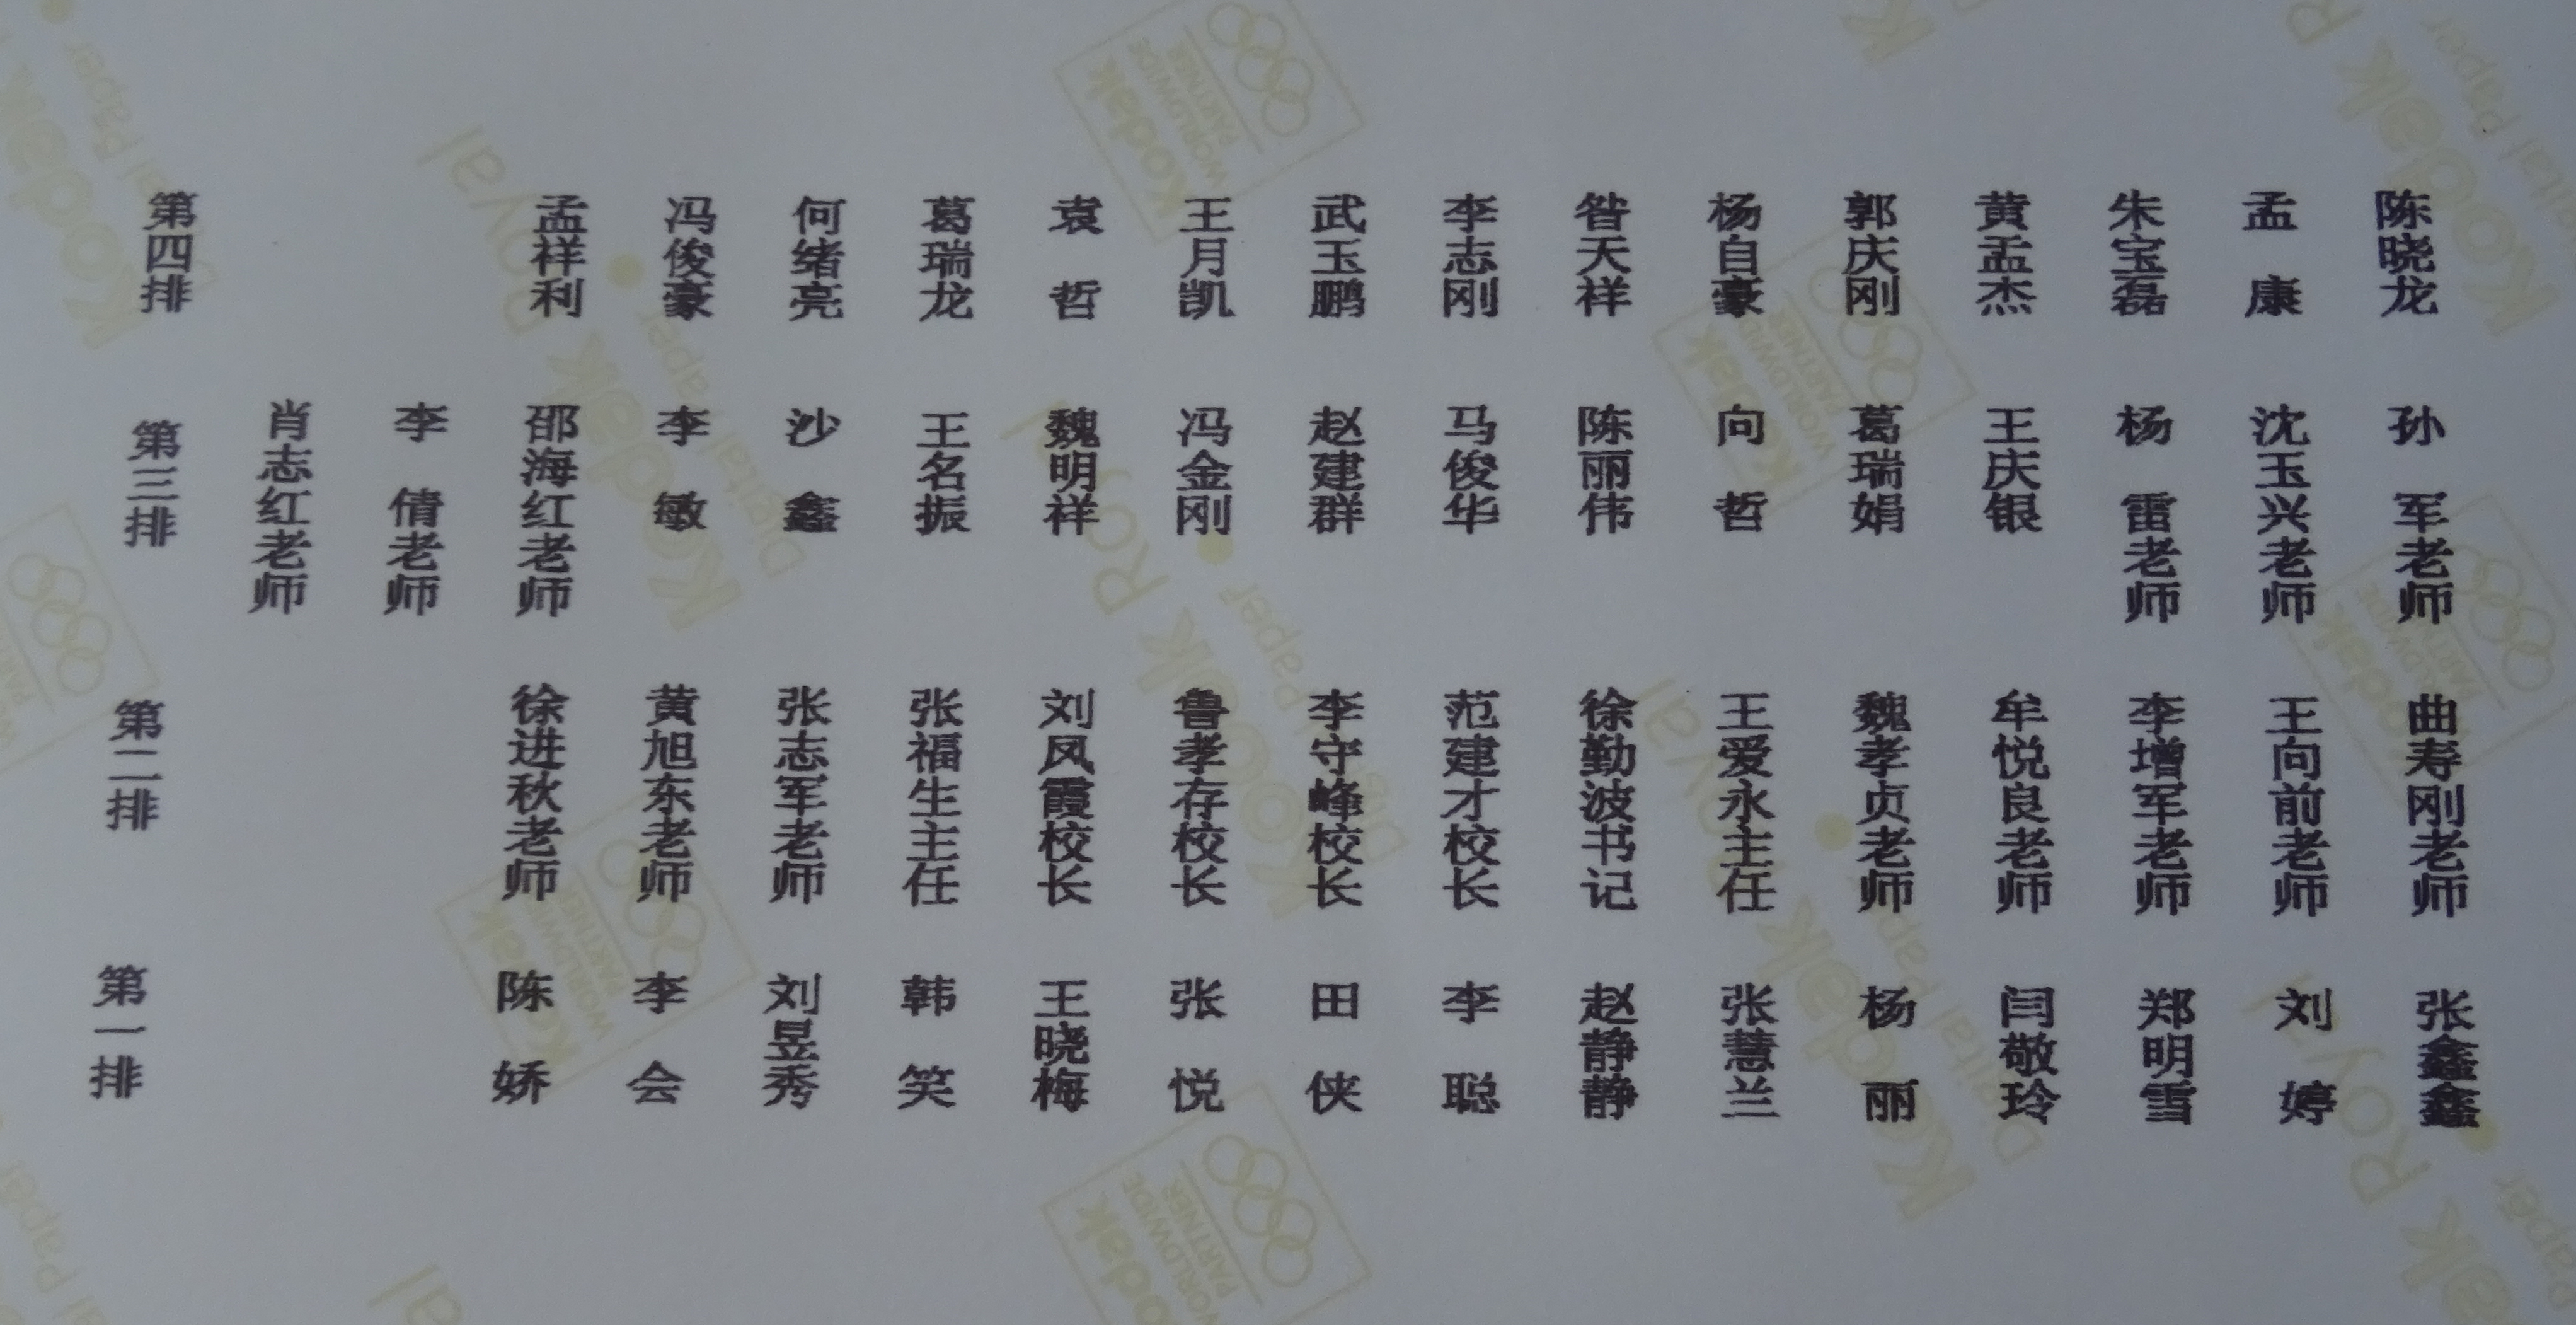 第四排 孟祥利 冯俊豪 何绪亮 葛瑞龙 袁哲 王月凯 武玉鹏 李志刚 昝天祥 杨自豪 郭庆刚 黄孟杰 朱宝磊 孟康 陈晓龙
第三排 肖志红老师 李倩老师 邵海红老师 李敏 沙鑫 王名振 魏明祥 冯金刚 赵建群 马俊华 陈丽伟 向哲 葛瑞娟 王庆银 杨雷老师 沈玉兴老师 孙军老师
第二排 徐进秋老师 黄旭东老师 张志军老师 张福生主任 刘凤霞校长 鲁孝存校长 李守峰校长 范建才校长 徐勤波书记 王爱永主任 魏孝贞老师 牟悦良老师 李增军老师 王向前老师 曲寿刚老师
第一排 陈娇 李会 刘昱秀 韩笑 王晓梅 张悦 田侠 李聪 赵静静 张慧兰 杨丽 闫敬玲 郑明雪 刘婷 张鑫鑫
Kodak
WORLDWIDE
PARTNER
Kodak Royal
Digital Paper